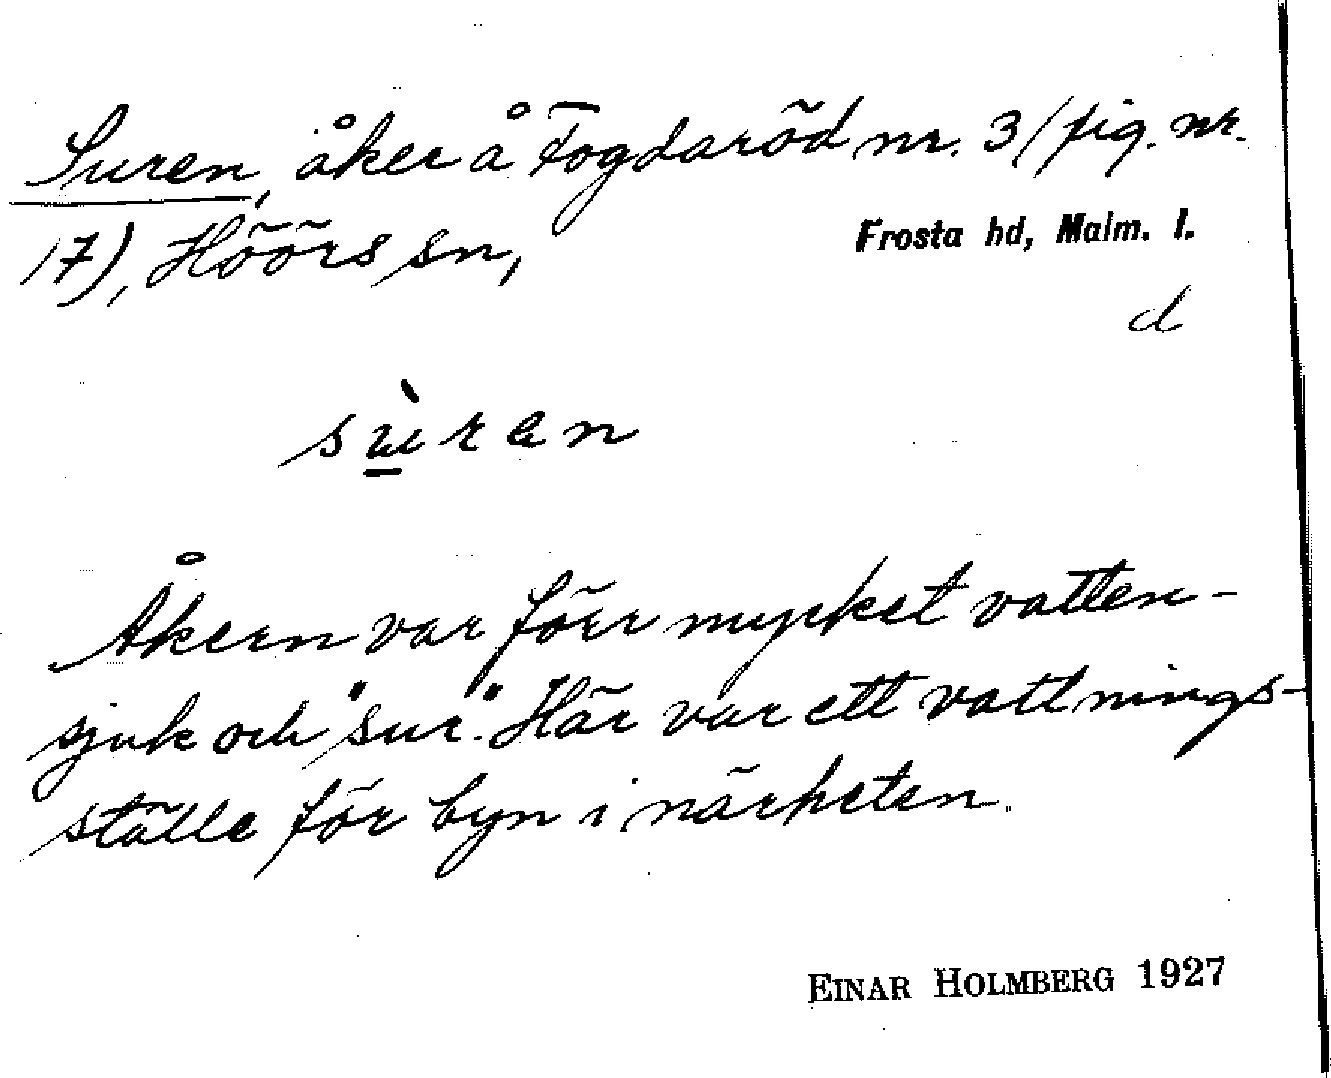 Suren, åker å Fogdaröd nr. 3 (fig. nr.
17), Höörs sn, Frosta hd, Malm. l.
d
sùren
Åkern var förr mycket vatten-
sjuk och "sur". Här var ett vattnings-
ställe för byn i närheten.
EINAR HOLMBERG 1927